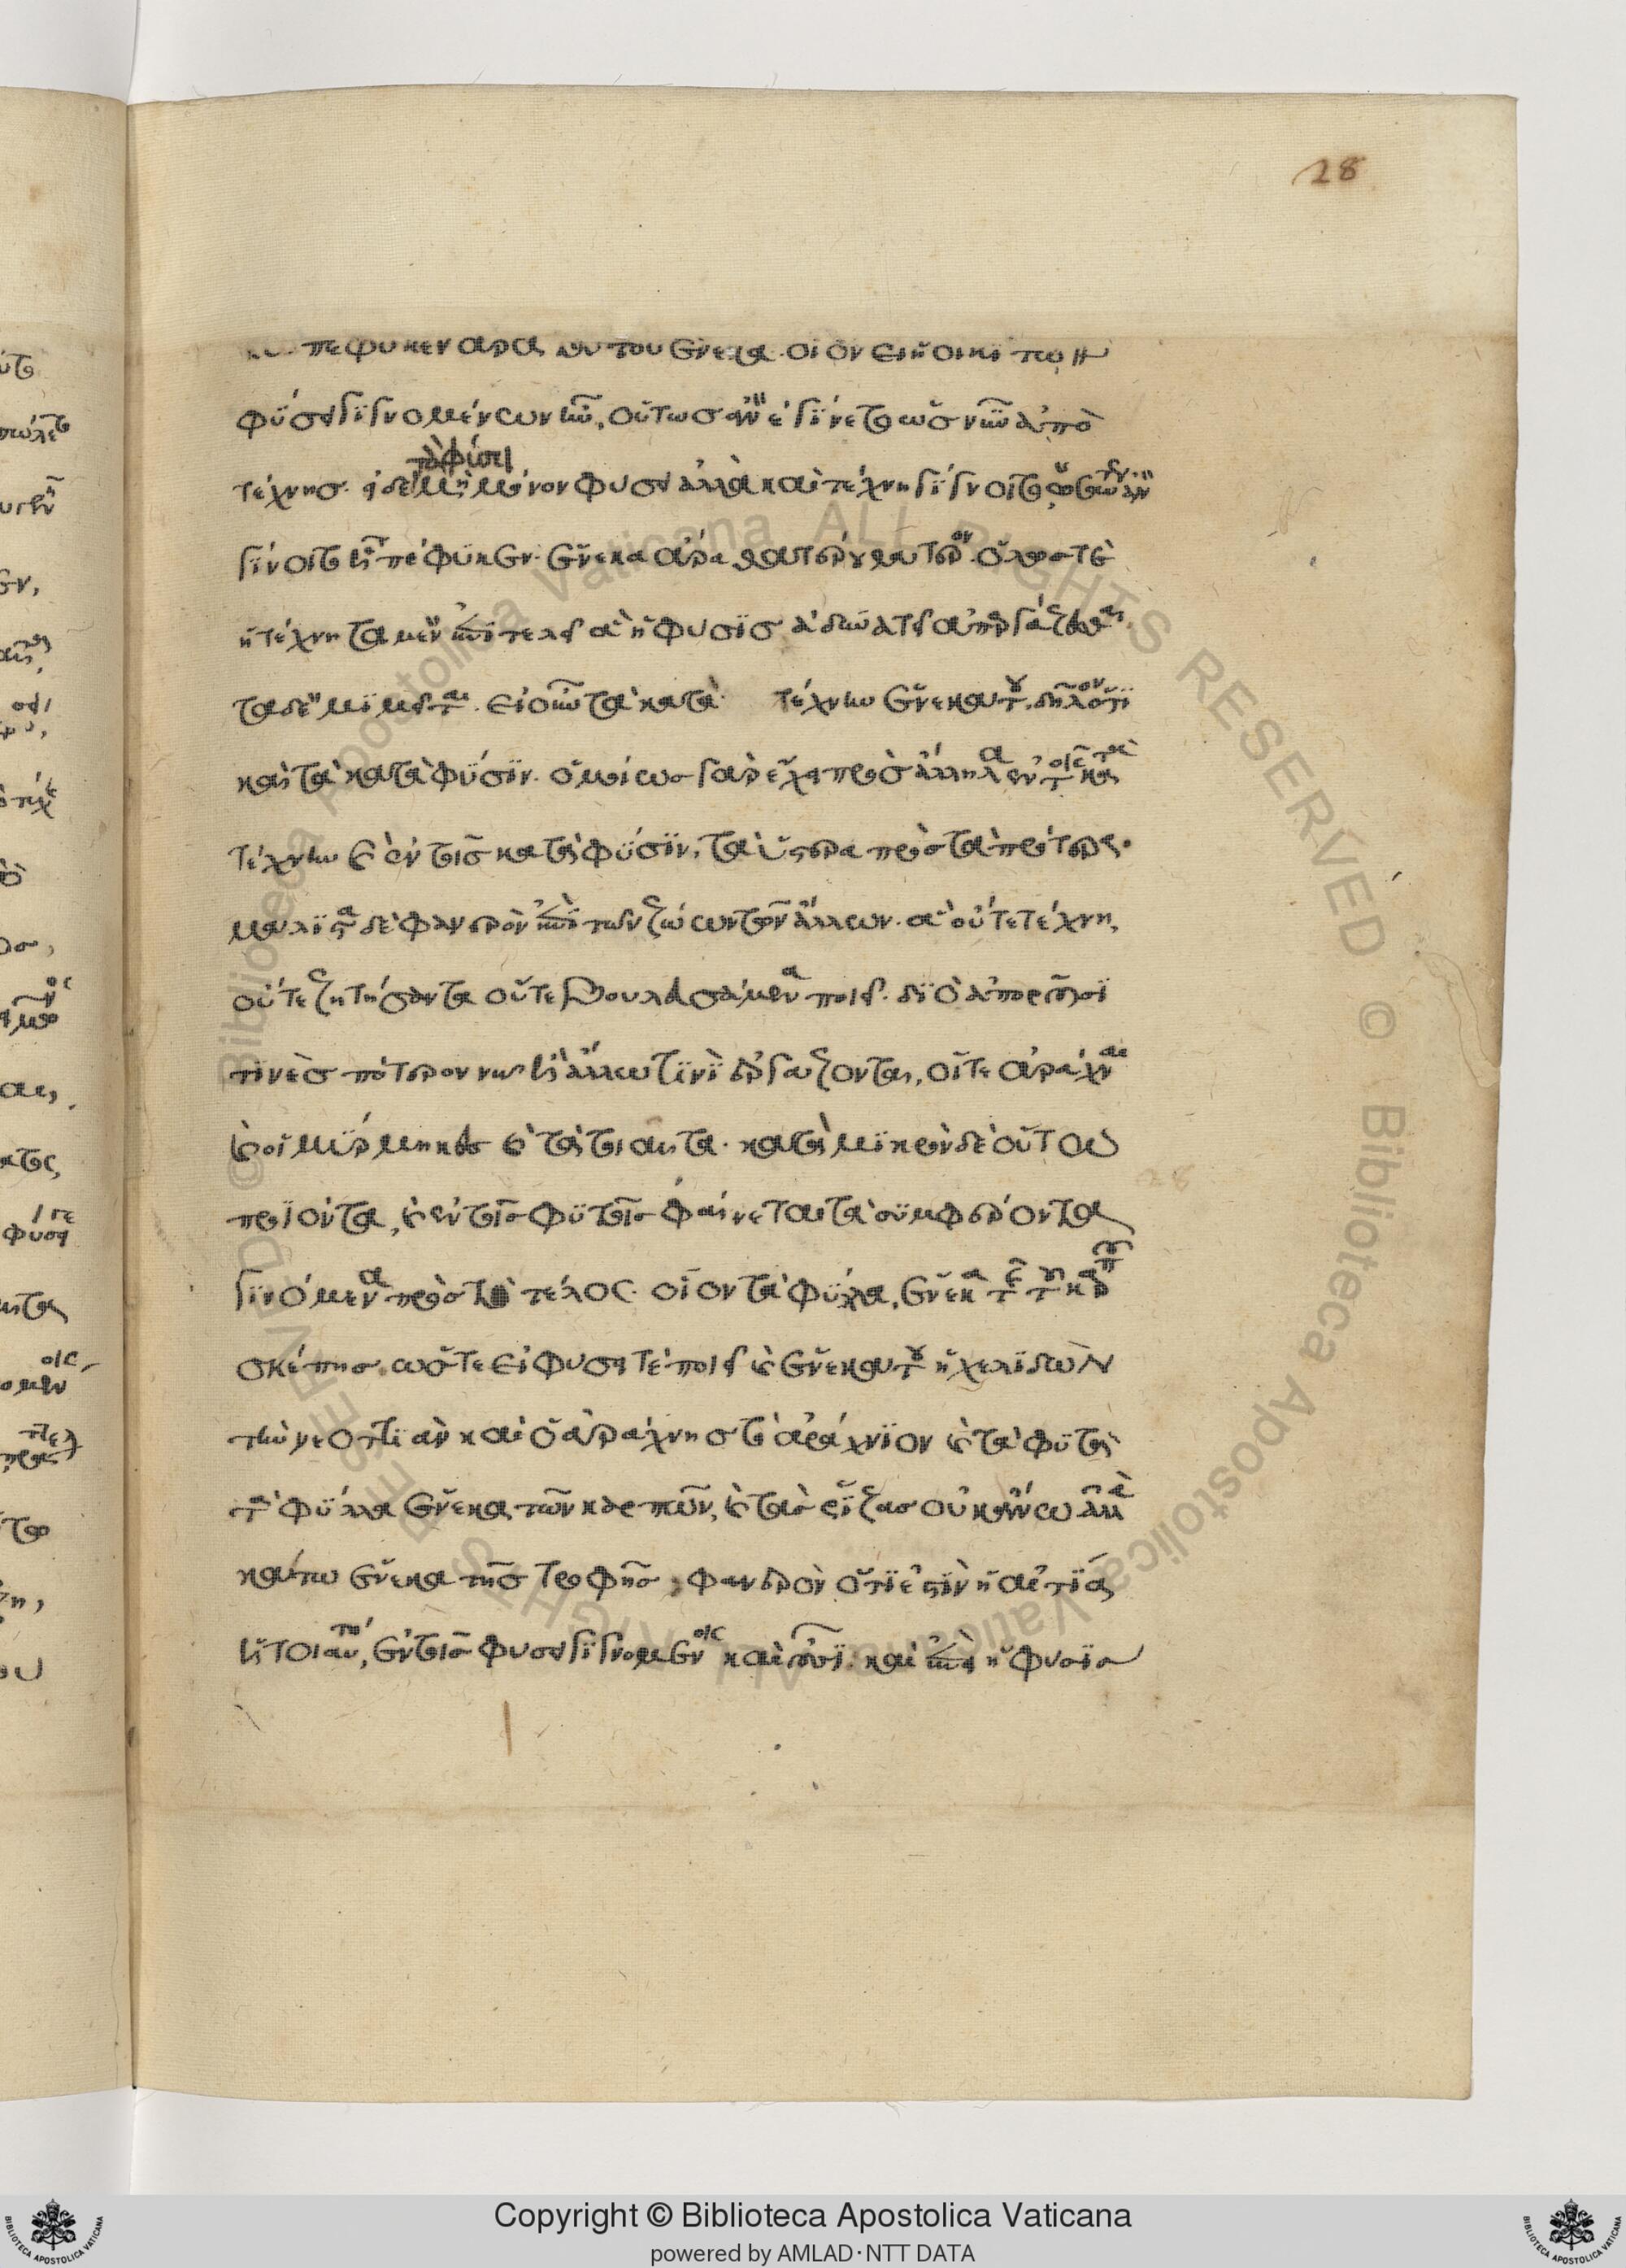 28
πεφυκεν ἄρα τούτου ἕνεκα. οἷον εἰ ἡ οἰκία τῶν
φύσει γιγνομένων ἦν, οὕτως ἂν ἐγίνετο ὡς νῦν ἀπὸ
τὰ φύσει
τέχνης. εἰ δὲ μὴ μόνον φύσει ἀλλὰ καὶ τέχνῃ γίγνοιτο, ὡσαύτως ἂν
γίνοιτο ᾗ πέφυκεν. ἕνεκα ἄρα θατέρου θάτερον. ὅλως τε
ἡ τέχνη τὰ μὲν ἐπιτελεῖ ἃ ἡ φύσις ἀδυνατεῖ ἀπεργάζεσθαι,
τὰ δὲ μιμεῖται. εἰ οὖν τὰ κατὰ τέχνην ἕνεκά του, δῆλον ὅτι
καὶ τὰ κατὰ φύσιν. ὁμοίως γὰρ ἔχει πρὸς ἄλληλα ἐν τοῖς κατὰ
τέχνην καὶ ἐν τοῖς κατὰ φύσιν, τὰ ὕστερα πρὸς τὰ πρότερα.
μάλιστα δὲ φανερὸν ἐπὶ τῶν ζώων τῶν ἄλλων. ἃ οὔτε τέχνῃ,
οὔτε ζητήσαντα οὔτε βουλευσάμενα ποιεῖ. διὸ ἀποροῦσί
τινες πότερον νῷ ἢ ἄλλῳ τινὶ ἐργάζονται, οἵ τε ἀράχναι
καὶ οἱ μύρμηκες καὶ τὰ τοιαῦτα. κατὰ μικρὸν δὲ οὕτω
προϊόντα, καὶ ἐν τοῖς φυτοῖς φαίνεται τὰ συμφέροντα
γινόμενα πρὸς τὸ τέλος. οἷον τὰ φύλλα, ἕνεκα τῆς τοῦ καρποῦ
σκέπης. ὥστε εἰ φύσει τε ποιεῖ καὶ ἕνεκά του ἡ χελιδὼν
τὴν νεοττιὰν καὶ ὁ ἀράχνης τὸ ἀράχνιον καὶ τὰ φυτὰ
τὰ φύλλα ἕνεκα τῶν καρπῶν, καὶ τὰς ῥίζας οὐκ ἄνω ἀλλὰ
κάτω ἕνεκα τῆς τροφῆς, φανερὸν ὅτι ἐστὶν ἡ αἰτία
ἡ τοιαύτη, ἐν τοῖς φύσει γιγνομένοις καὶ οὖσι. καὶ ἐπεὶ ἡ φύσις